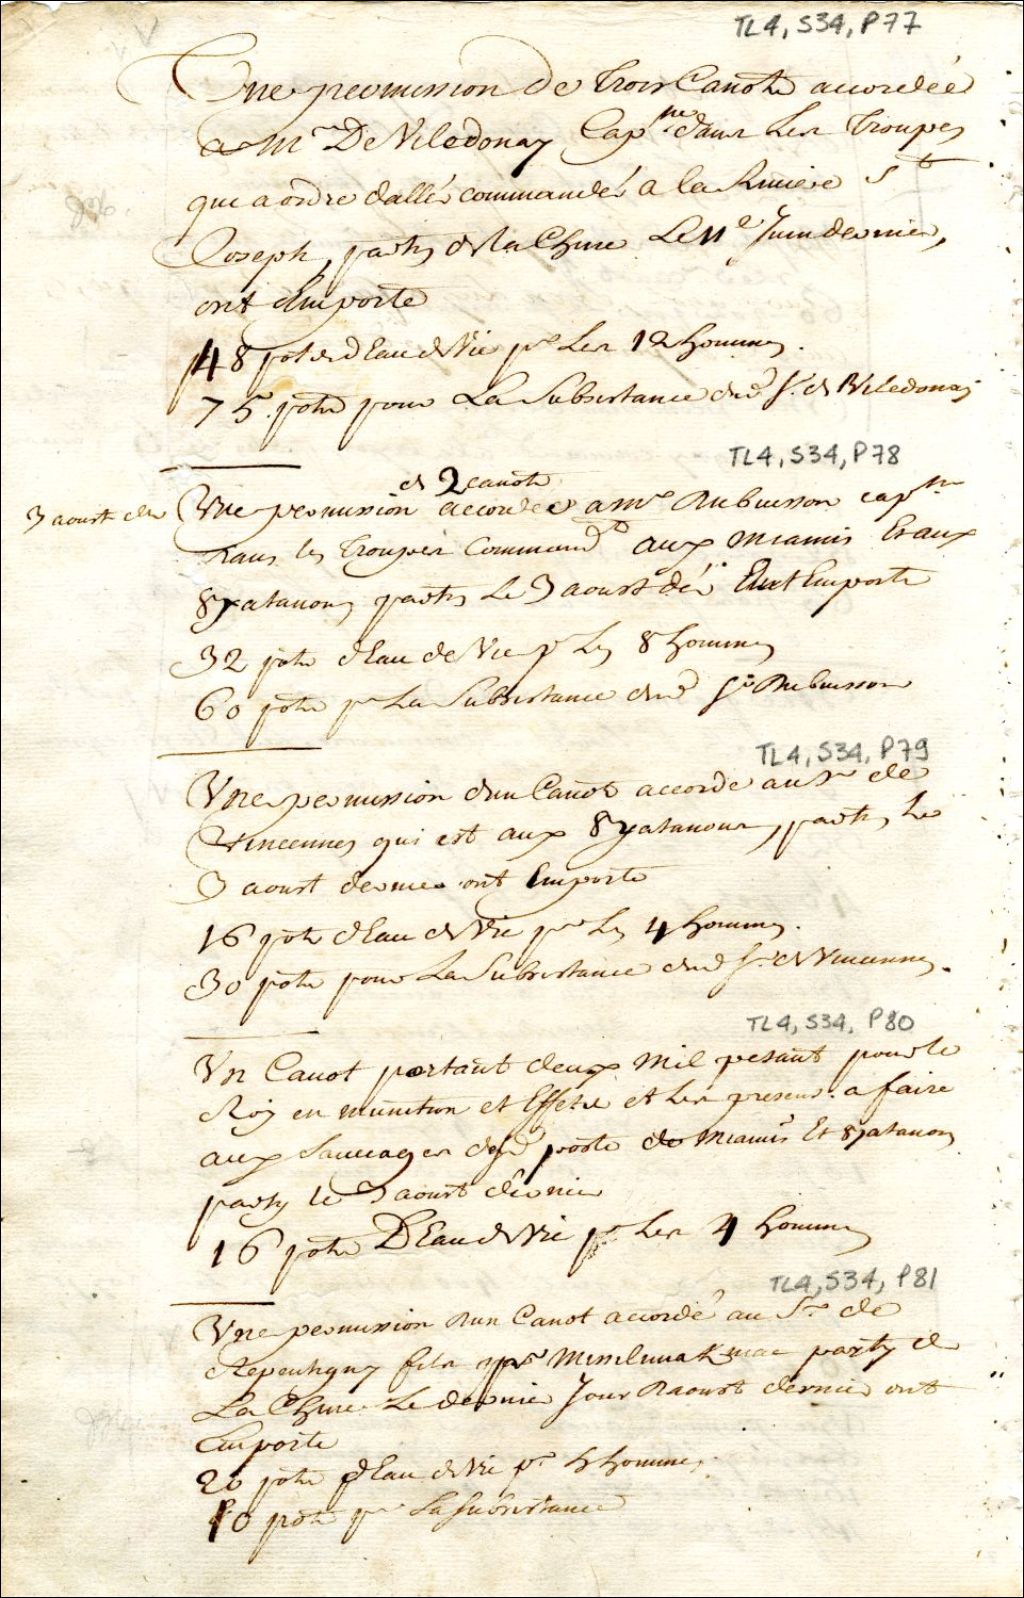 TL4, S34, P77
Une permission de trois Canots accordée
a Mr De Viledonay Capne dans Les troupes
que a ordre dallér commandér a la Riviere St
Joseph, partis de la Chine Le 11e Juin dernier,
ont Emporté
48 pots d'Eau de Vie pr Les 12 hommes.
75 pots pour La Subsistance dud Sr. de Viledonay
TL4, S34, P78
de 2 canots
3 aoust der
Une permission accordée a Mr Dubuisson capne
dans les troupes Commandt aux Miamis Et aux
8yatanons partis Le 3 aoust dér Ont Emporté
32 pots d'Eau de Vie pr Les 8 hommes
60 pots pr La Subsistance dud Sr Dubuisson
TL4, S34, P79
Une permission d'un Canot accordé au Sr de
Vincennes qui est aux 8yatanons, partis le
3 aoust dernier ont Emporté
16 pots d'Eau de Vie pr Les 4 hommes.
30 pots pour La Subsistance dud Sr de Vincennes.
TL4, S34, P80
Un Canot portant deux Mil pesant pour le
Roy en munition et Effets et Les presens a faire
aux Sauvages desd poste de Miamis Et 8yatanons
party le 3 aoust dernier
16 pots D'Eau de Vie pr Les 4 hommes
TL4, S34, P81
Une permission d'un Canot accordé au Sr de
Repentigny fils pr Missilimakinac party de
La Chine Le dernier Jour d'aoust dernier ont
Emporté
20 pots d'Eau de Vie pr 5 hommes
10 pots pr La Subsistance